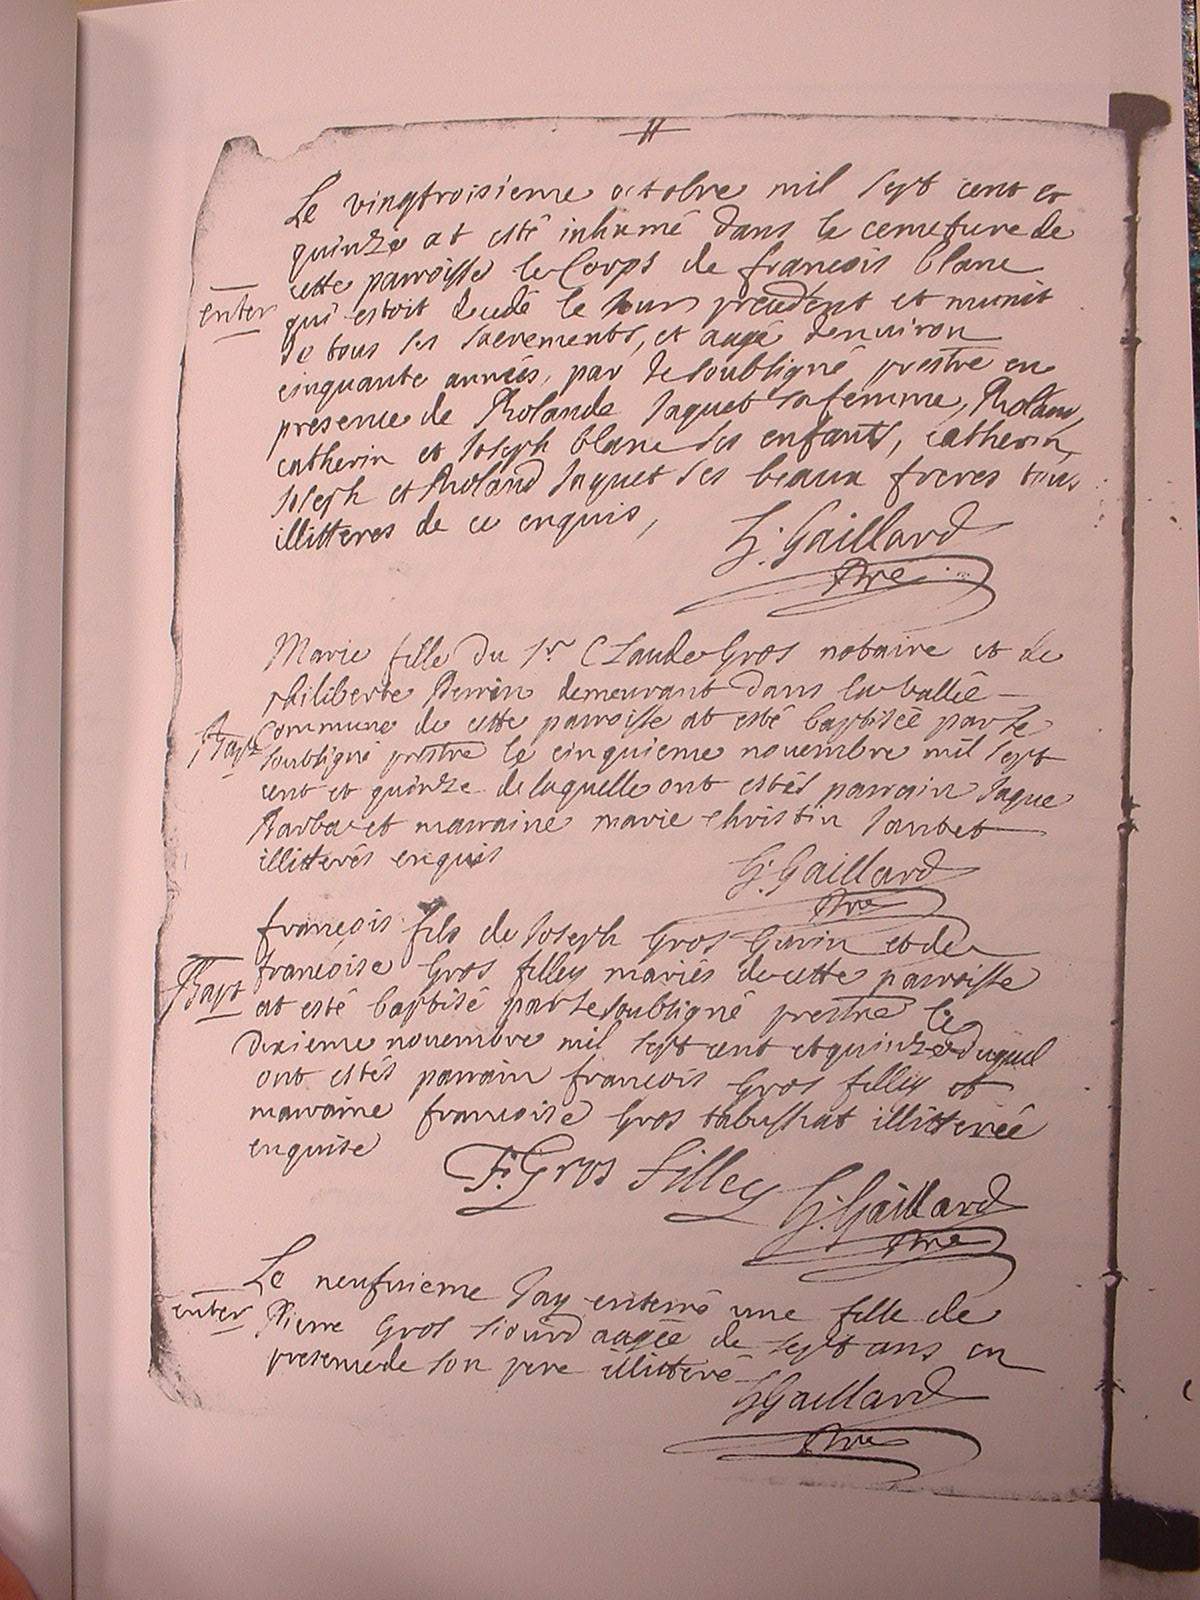 Le vingtroisieme octobre mil sept cent et
quinze at esté inhumé dans le cemetiere de
cette parroisse le Corps de francois blanc
enter
qui estoit decedé le Jour precedent et munit
de tous ses sacrements, et aagé denuiron
cinquante années, par Je soubsigné prestre en
presence de Rolande Jaquet sa femme, Roland,
catherin et Joseph blanc ses enfants, catherin,
Joseph et Roland Jaquet ses beaux freres tous
illitteres de ce enquis,
G. Gaillard
Ptre
Marie fille du Sr Claude Gros notaire et de
philiberte Perrin demeurant dans la vallée
commune de cette parroisse at esté baptisée par le
Bapt
soubsigné prestre le cinquieme nouembre mil sept
cent et quinze de laquelle ont estés parrain Jaque
et marraine marie christin
illitterés enquis
G. Gaillard
Ptre
francois fils de Joseph Gros Gurin et de
francoise Gros filley mariés de cette parroisse
Bapt
at esté baptisé par le soubsigné prestre le
dixieme nouembre mil sept cent et quinze duquel
ont estés parrain francois Gros filley et
marraine francoise Gros illitterée
enquise
F. Gros Filley
G. Gaillard
Ptre
Le neufuieme Jay enterré une fille de
enter
Pierre Gros aagée de sept ans en
presence de son pere illitteré
G Gaillard
Ptre